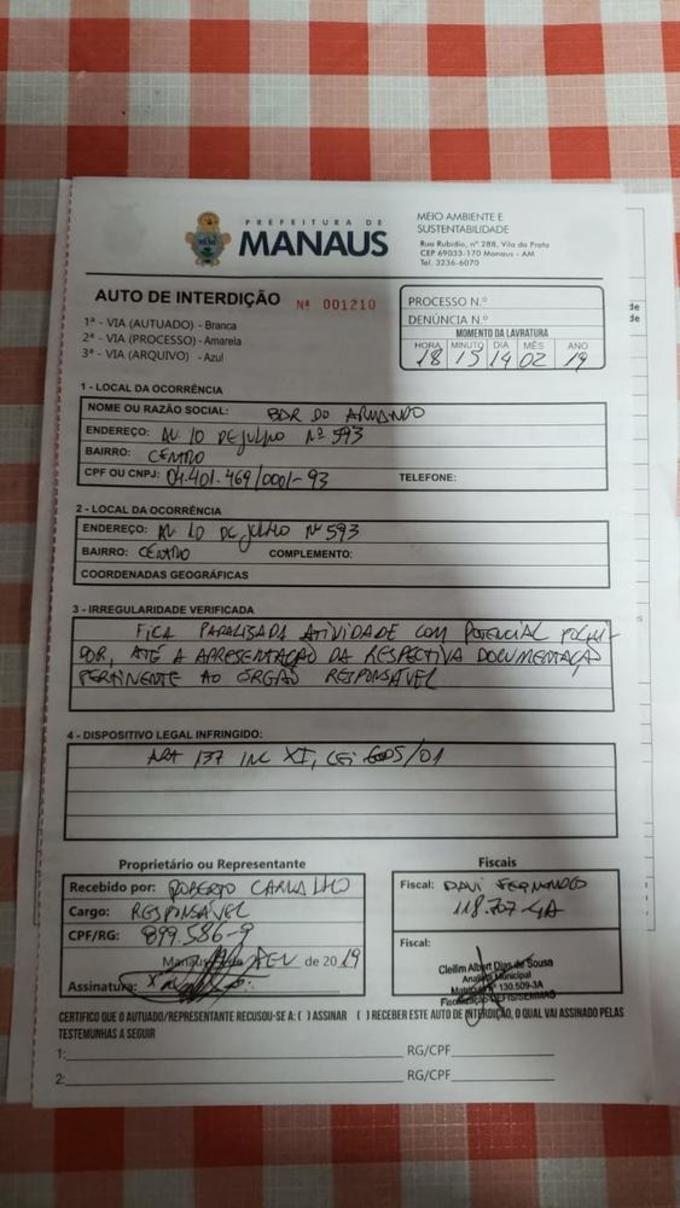 PREFEITURA DE
MANAUS
MEIO AMBIENTE E
SUSTENTABILIDADE
Rua Rubídio, nº 288, Vila da Prata
CEP 69033-170 Manaus - AM
Tel. 3236-6070
AUTO DE INTERDIÇÃO Nº 001210
1ª - VIA (AUTUADO) - Branca
2ª - VIA (PROCESSO) - Amarela
3ª - VIA (ARQUIVO) - Azul
PROCESSO N.º
DENÚNCIA N.º
MOMENTO DA LAVRATURA
HORA MINUTO DIA MÊS ANO
18 15 14 02 19
de
de
1 - LOCAL DA OCORRÊNCIA
NOME OU RAZÃO SOCIAL: BAR DO ARMANDO
ENDEREÇO: AV. 10 DE JULHO Nº 593
BAIRRO: CENTRO
CPF OU CNPJ: 04.401.469/0001-93 TELEFONE:
2 - LOCAL DA OCORRÊNCIA
ENDEREÇO: AV 10 DE JULHO Nº 593
BAIRRO: CENTRO COMPLEMENTO:
COORDENADAS GEOGRÁFICAS
3 - IRREGULARIDADE VERIFICADA
FICA PARALISADA ATIVIDADE COM POTENCIAL POLUI-
DOR, ATÉ A APRESENTAÇÃO DA RESPECTIVA DOCUMENTAÇÃO
PERTINENTE AO ORGÃO RESPONSÁVEL
4 - DISPOSITIVO LEGAL INFRINGIDO:
ART 137 INC XI, LEI 605/01
Proprietário ou Representante
Recebido por: ROBERTO CARVALHO
Cargo: RESPONSÁVEL
CPF/RG: 899.586-9
Manaus, de FEV de 2019
Assinatura:
Fiscais
Fiscal: DAVI FERNANDES
118.707-4A
Fiscal:
Cleilim Albert Dias de Sousa
Analista Municipal
Matrícula Nº 130.509-3A
Fiscalização DEFIS/SEMMAS
CERTIFICO QUE O AUTUADO/REPRESENTANTE RECUSOU-SE A: ( ) ASSINAR ( ) RECEBER ESTE AUTO DE INTERDIÇÃO, O QUAL VAI ASSINADO PELAS
TESTEMUNHAS A SEGUIR
1: RG/CPF
2: RG/CPF